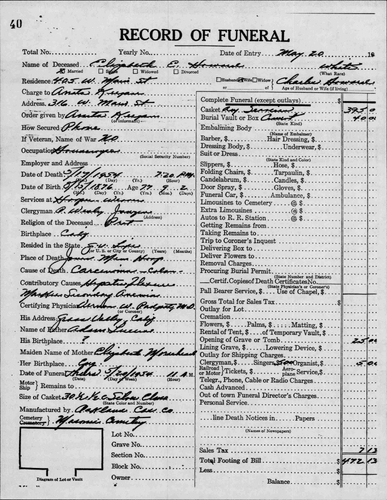 40
RECORD OF FUNERAL
Total No. Yearly No. Date of Entry May 20 19
Name of Deceased Elizabeth E. Howard White
Married Widowed Divorced (What Race)
Residence 405 W. Main St Husband Wife Widow Charles Howard
Age of Husband or Wife (if living)
Charge to Anita
Address 316 W. Main St
Order given by Anita
How Secured Phone
If Veteran, of War No
Occupation Housewife
Social Security Number
Employer and Address
Date of Death 5/17/1954 7:20 PM
Date of Birth 8/15/1876 77 9 2
Services at
Clergyman
Religion of the Deceased Prot
Birthplace Calif
Resided in the State
Place of Death
Cause of Death Carcinoma - Colon
Contributory Causes
Secondary Anemia
Certifying Physician M.D.
His Address Grass Valley Calif
Name of Father Adam
His Birthplace ?
Maiden Name of Mother Elizabeth
Her Birthplace
Date of Funeral 5/20/1954 11 A.M.
Motor Ship Remains to
Size of Casket
Manufactured by Oakland Cas. Co.
Cemetery Masonic Cemetery
Lot No.
Grave No.
Section No.
Block No.
Owner
Diagram of Lot or Vault
Complete Funeral (except outlays) $
Casket Service 395 0
Burial Vault or Box 40 00
(State Kind)
Embalming Body
(Name of Embalmer)
Barber, $ Hair Dressing, $
Dressing Body, $ Underwear, $
Suit or Dress
(State Kind and Color)
Slippers, $ Hose, $
Folding Chairs, $ Tarpaulin, $
Candelabrum, $ Candles, $
Door Spray, $ Gloves, $
Funeral Car, $ Ambulance, $
Limousines to Cemetery @ $
Extra Limousines @ $
Autos to R. R. Station @ $
Getting Remains from
Taking Remains to
Trip to Coroner's Inquest
Delivering Box to
Deliver Flowers to
Removal Charges
Procuring Burial Permit
(State Number and District)
Certif. Copies of Death Certificates No.
(State Physician's or Coroner's)
Pall Bearer Service, $ Use of Chapel, $
Gross Total for Sales Tax $
Outlay for Lot
Cremation
Flowers, $ Palms, $ Matting, $
Rental of Tent, $ of Temporary Vault, $
Opening of Grave or Tomb 25 00
Lining Grave, $ Lowering Device, $
Outlay for Shipping Charges
Clergyman, $ Singers, $5.00 Organist, $ 5 00
Railroad or Motor Tickets, $ Aeroplane Service, $
Telegr., Phone, Cable or Radio Charges
Cash Advanced
Out of town Funeral Director's Charges
Personal Service
line Death Notices in Papers
(Names of Newspapers)
Sales Tax 7 13
Total Footing of Bill $ 472 13
Less
Balance $